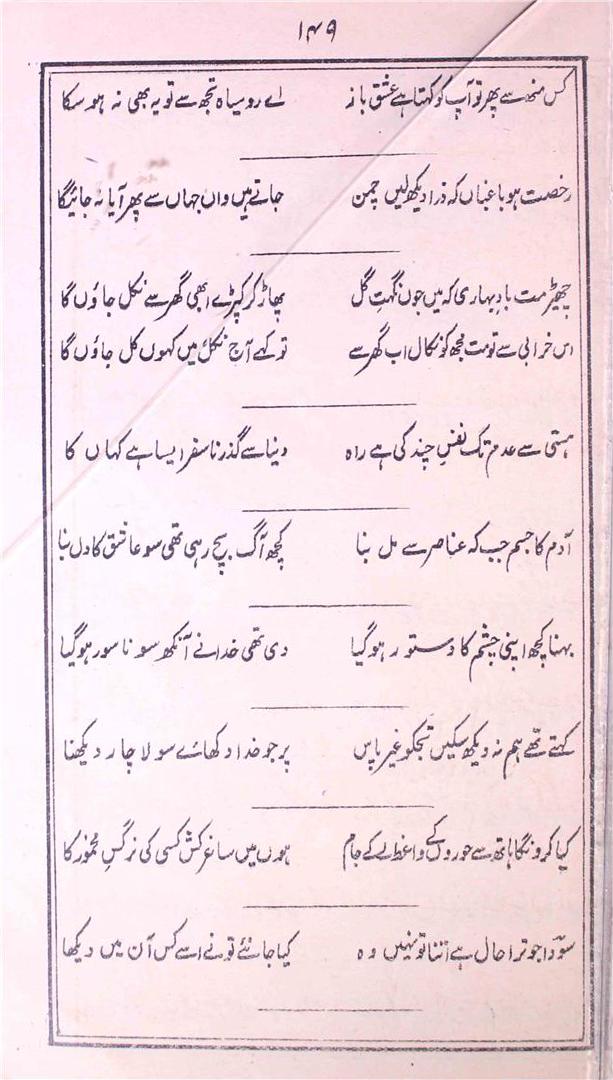 ۱۴۹
کس منہ سے پھر تو آپ کو کہتا ہے عشق باز اے رو سیاہ تجھ سے تو یہ بھی نہ ہو سکا
رخصت ہو باغباں کہ ذرا دیکھ لیں چمن جاتے ہیں واں جہاں سے پھر آیا نہ جائیگا
چھیڑ مت بادِ بہاری کہ میں جوں نکہتِ گل پھاڑ کر کپڑے ابھی گھر سے نکل جاؤں گا
اس خرابی سے تو مت مجھ کو نکال اب گھر سے تو کہے آج نکل میں کہوں کل جاؤں گا
ہستی سے عدم تک نفسِ چند کی ہے راہ دنیا سے گذرنا سفر ایسا ہے کہاں کا
آدم کا جسم جب کہ عناصر سے مل بنا کچھ آگ بچ رہی تھی سو عاشق کا دل بنا
بہنا کچھ اپنی چشم کا دستور ہو گیا دی تھی خدا نے آنکھ سو ناسور ہو گیا
کہتے تھے ہم نہ دیکھ سکیں تجکو غیر پاس پر جو خدا دکھائے سو لاچار دیکھنا
کیا کرونگا ہاتھ سے حوروں کے واعظ لے کے جام ہوں میں ساغر کش کسی کی نرگسِ مخمور کا
سودا جو ترا حال ہے اتنا تو نہیں وہ کیا جانئے تو نے اسے کس آن میں دیکھا